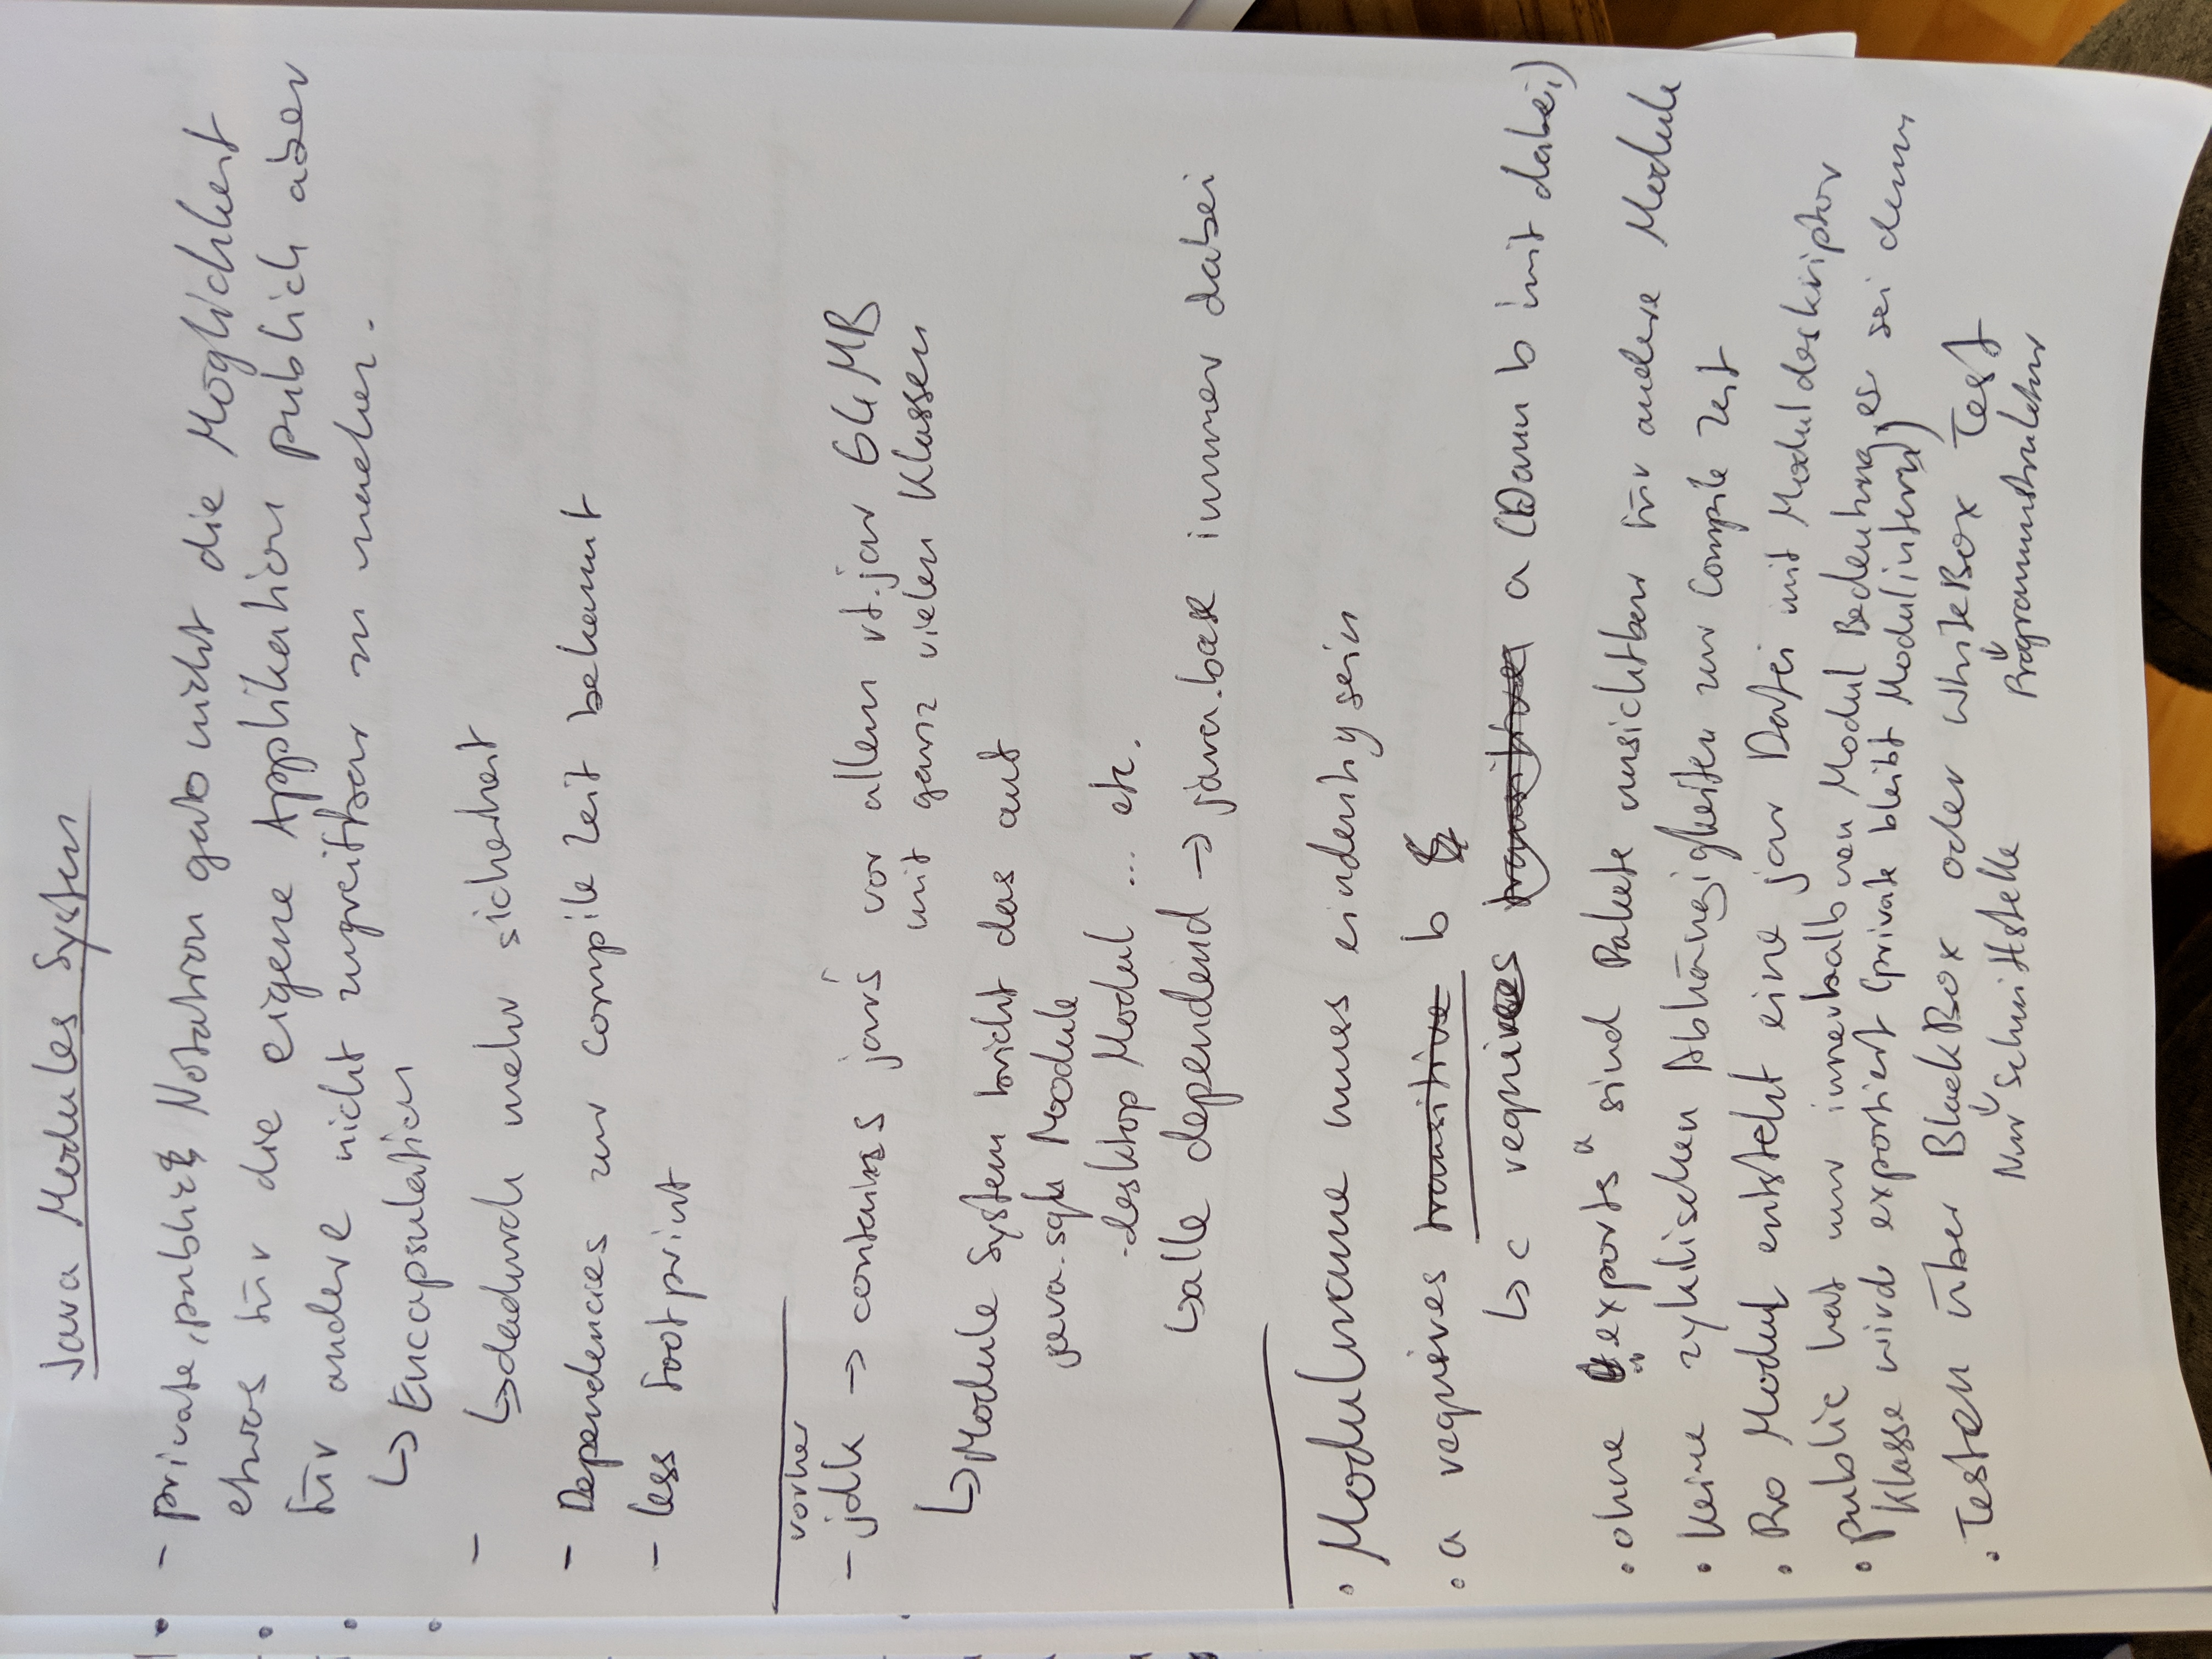 Java Modules System
- private, public Notation gab nicht die Möglichkeit
etwas für die eigene Applikation publich aber
für andere nicht zugreifbar zu machen.
↳ Encapsulation
-
↳ dadurch mehr sicherheit
- Dependencies zur compile Zeit bekannt
- less footprint
vorher
- jdk → contains jar's vor allem rt.jar 64MB
mit ganz vielen Klassen
↳ Module System bricht das auf
java.sql Module
-desktop Modul ... etc.
↳ alle dependend → java.base immer dabei
• Modulname muss eindeutig sein
• a requires transitive b
↳ c requires transitive a (Dann b mit dabei)
• ohne "exports" sind Pakete unsichtbar für andere Module
• Keine zyklischen Abhängigkeiten zur Compile Zeit
• Pro Modul entsteht eine jar Datei mit Moduldeskriptor
• public hat nur innerhalb von Modul Bedeutung, es sei denn
Klasse wird exportiert (private bleibt Modulintern)
• Testen über BlackBox oder WhiteBox Test
Nur Schnittstelle Programmstruktur